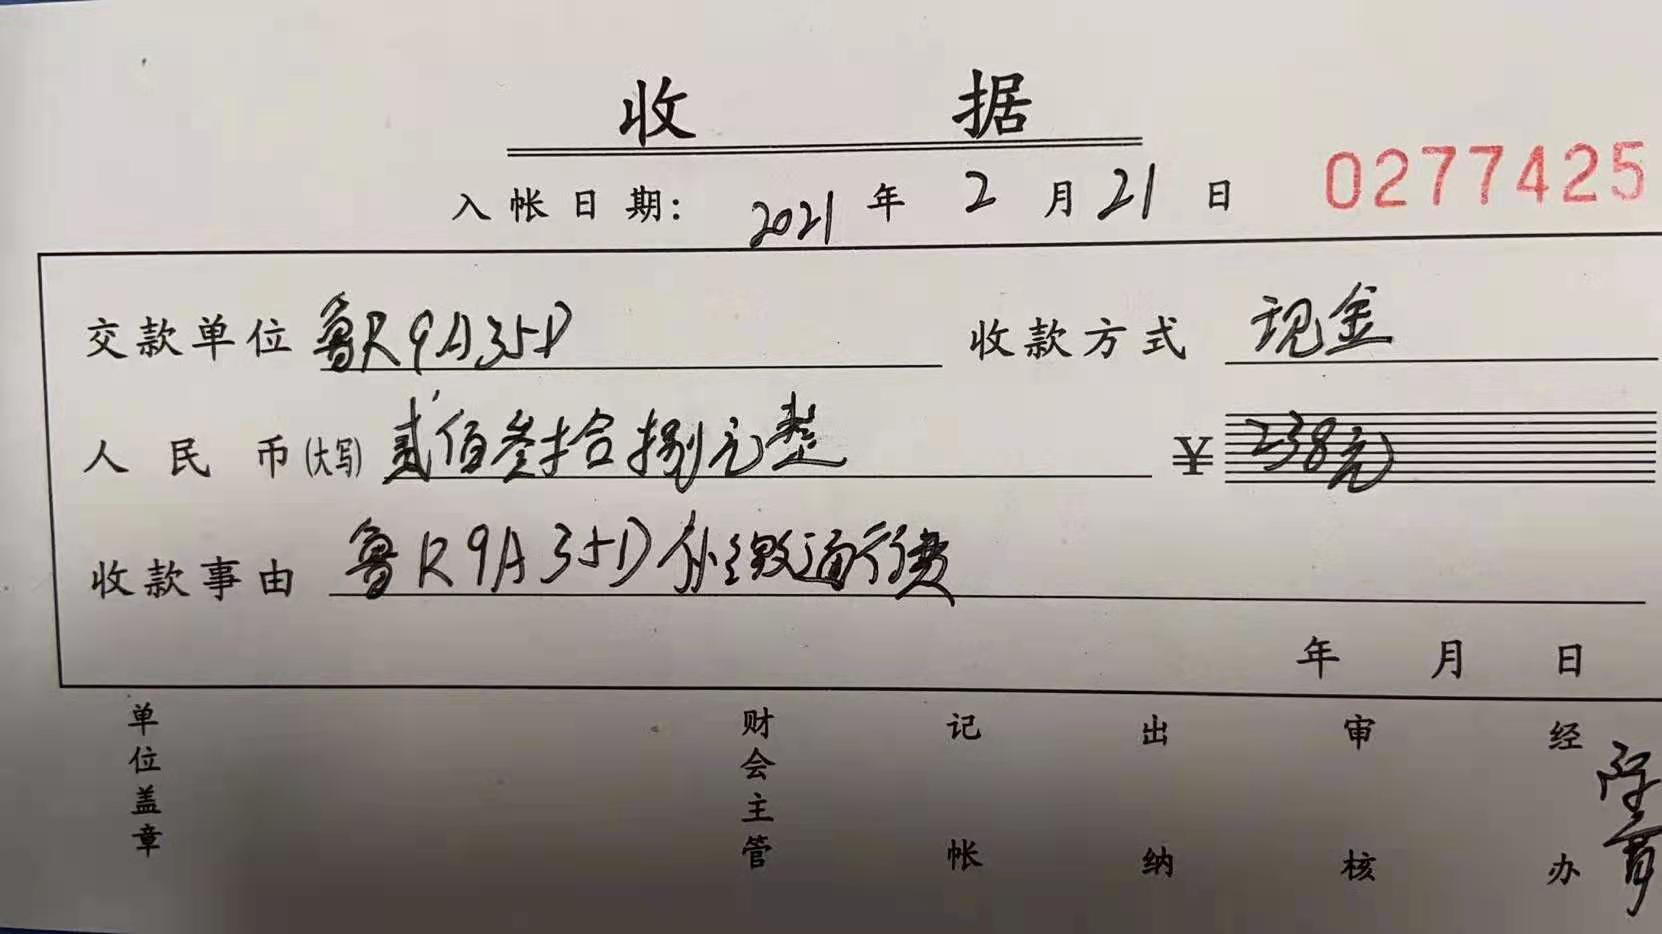 收 据
入帐日期: 2021 年 2 月 21 日 0277425
交款单位 鲁R9A35D 收款方式 现金
人民币(大写) 贰佰叁拾捌元整 ¥ 238元
收款事由 鲁R9A35D补缴通行费
年 月 日
单位盖章 财会主管 记帐 出纳 审核 经办